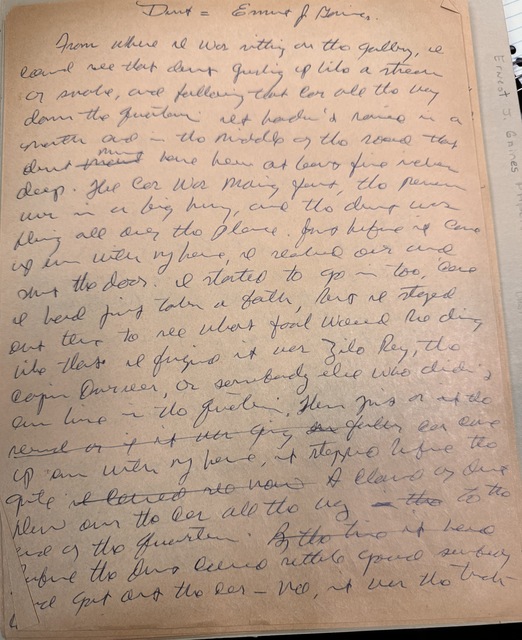 Dust = Ernest J Gaines.
From where I was sitting on the gallery, I
could see that dust gushing up like a stream
of smoke, and following that car all the way
down the quarters. It hadn't rained in a
month and in the middle of the road that
dust must have been at least five inches
deep. The car was moving fast, the person
was in a big hurry, and the dust was
flying all over the place. Just before it came
up even with my house, I reached over and
shut the door. I started to go in too, 'cause
I had just taken a bath, but I stayed
out there to see what fool would be driving
like that. I figured it was Zilo Rey, the
, or somebody else who didn't
live in the quarters. Then just as
up even with my house, it stopped before the
gate A cloud of dust
blew over the car all the way to the
end of the quarters. By the time it
before the dust settle good somebody
got out the car — No, it was the
Ernest J. Gaines